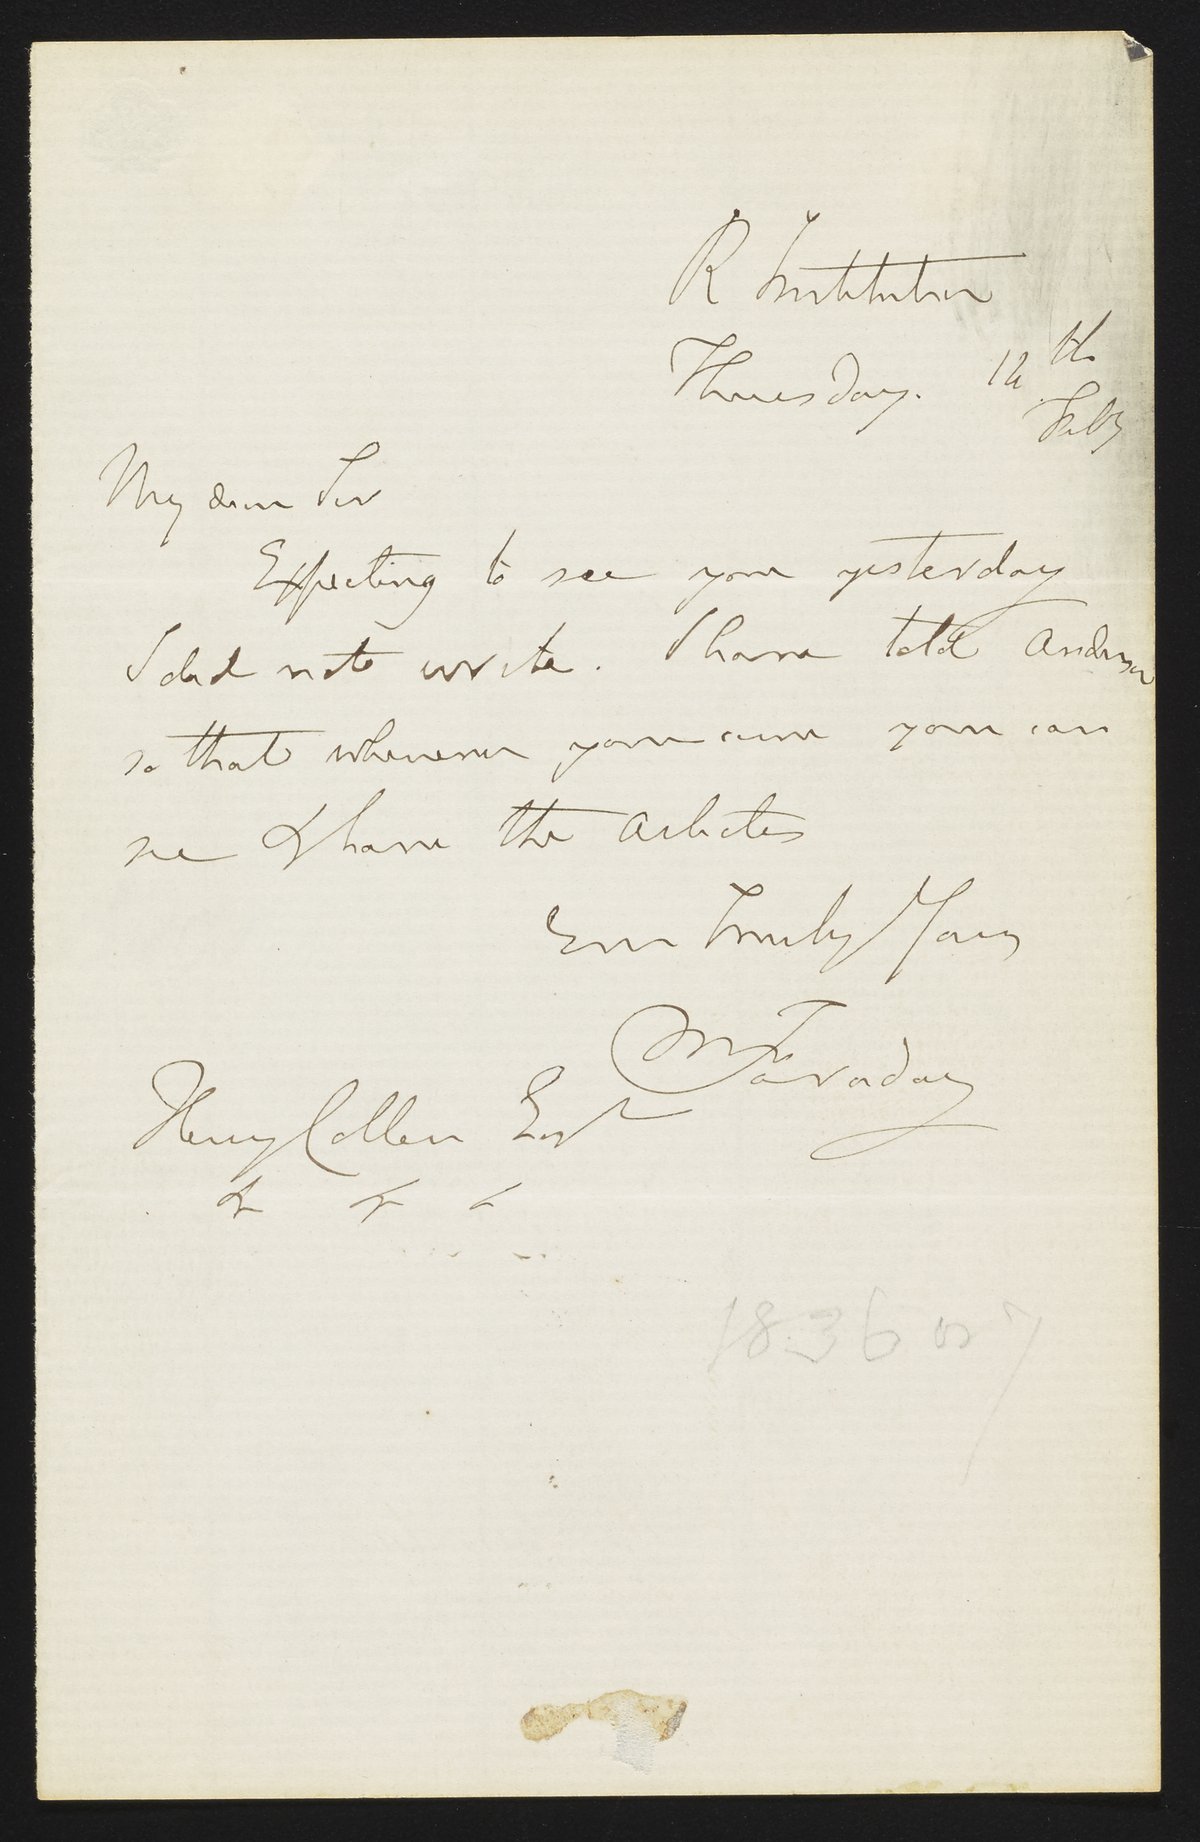 R Institution
Thursday. 12th
Feby
My dear Sir
Expecting to see you yesterday
I did not write. I have told Anderson
so that whenever you come you can
see & have the articles
Ever Truly Yours
M Faraday
Henry Collen Esqr
& & &
1836 or 7